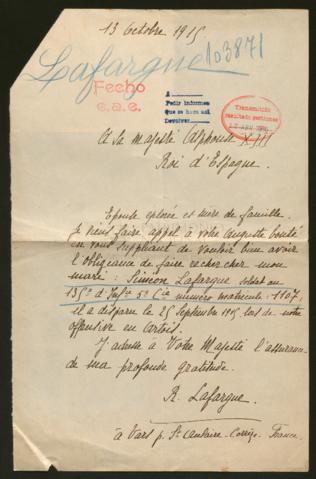 13 Octobre 1915
Lafargue
103871
Fecho
e.a.e.
A
Pedir informes
Que se haga así
Devolver
Transmitido
resultado gestiones
A Sa Majesté Alphonse XIII
Roi d'Espagne.
Epouse éplorée et mère de famille.
Je viens faire appel à votre Auguste bonté
en vous suppliant de vouloir bien avoir
l'obligeance de faire rechercher mon
mari: Siméon Lafargue soldat au
135e d'Infie 5e Cie numéro matricule: 1107;
il a disparu le 25 Septembre 1915 lors de notre
offensive en Artois.
J'adresse à Votre Majesté l'assurance
de ma profonde gratitude.
R. Lafargue.
à Vars p. St Aulaire. Corrèze. France.